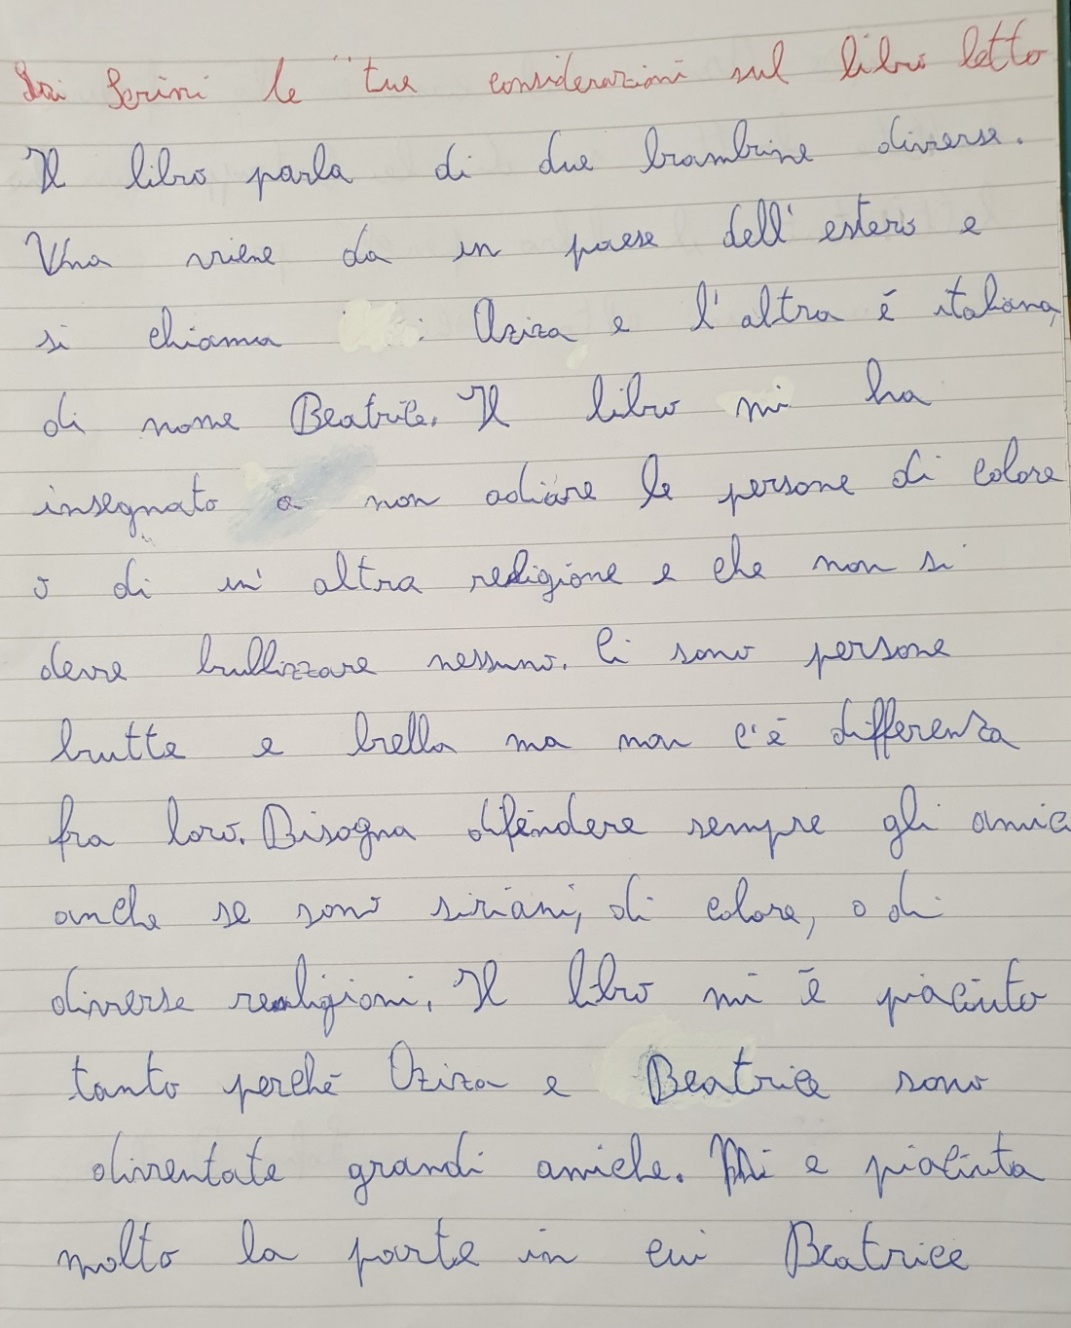 Scrivi le tue considerazioni sul libro letto
Il libro parla di due bambine diverse.
Una viene da un paese dell'estero e
si chiama : Aziza e l'altra è italiana,
di nome Beatrice. Il libro mi ha
insegnato a non odiare le persone di colore
o di un'altra religione e che non si
deve bullizzare nessuno. Ci sono persone
brutte e bella ma non c'è differenza
fra loro. Bisogna difendere sempre gli amic
anche se sono siriani, di colore, o di
diverse religioni. Il libro mi è piaciuto
tanto perchè Aziza e Beatrice sono
diventate grandi amiche. Mi e piaciuta
molto la parte in cui Beatrice